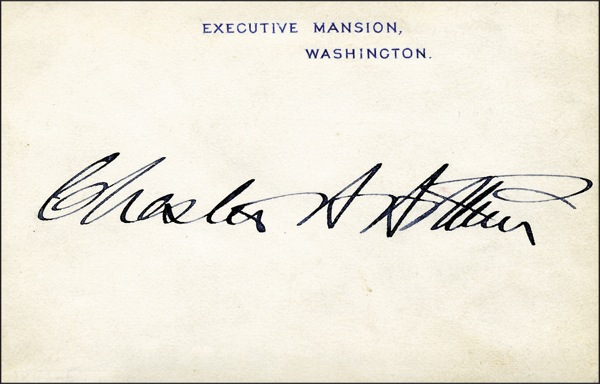 EXECUTIVE MANSION,
WASHINGTON.
Chester A Arthur